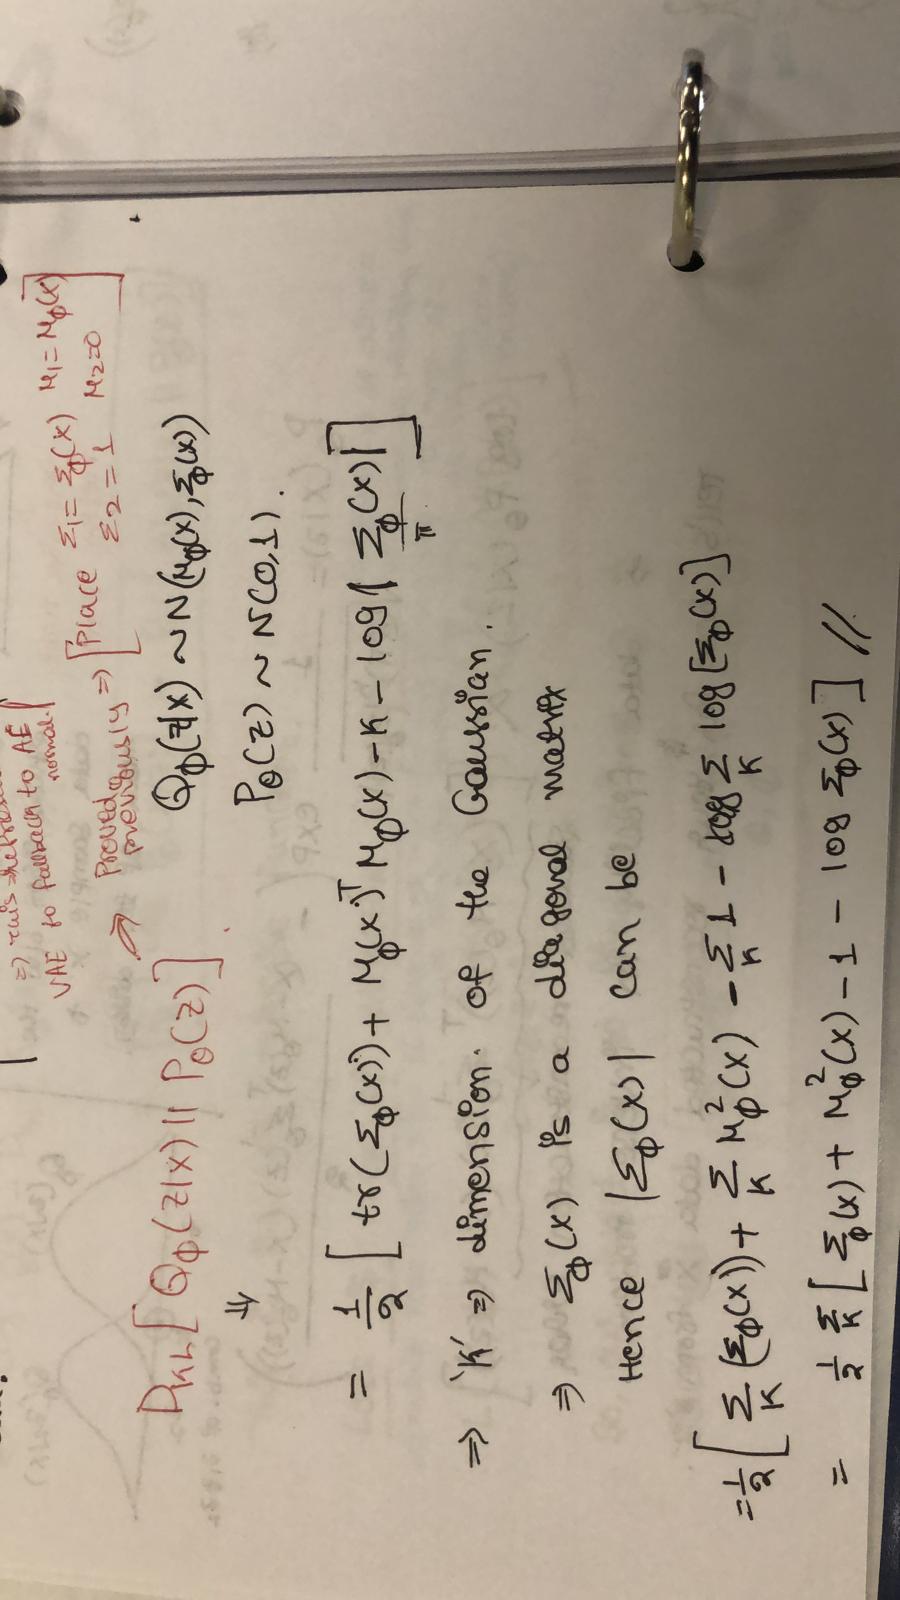 ⇒ this
VAE to fallback to AE
normal.
Proved previously ⇒ [Place Σ₁ = Σϕ(x) μ₁ = μϕ(x)
Σ₂ = 1 μ₂=0]
D_KL[Qϕ(z|x) || Pθ(z)].
Qϕ(z|x) ~ N(μϕ(x), Σϕ(x))
⇓ Pθ(z) ~ N(0,1).
= 1/2 [tr(Σϕ(x)) + μϕ(x)ᵀ μϕ(x) - K - log|Σϕ(x)|]
π
⇒ 'K' ⇒ dimension. of the Gaussian.
⇒ Σϕ(x) is a diagonal matrix
Hence |Σϕ(x)| can be
= 1/2 [Σ_K (Σϕ(x)) + Σ_K μϕ²(x) - Σ_K 1 - log Σ_K log[Σϕ(x)]
= 1/2 Σ_K [Σϕ(x) + μϕ²(x) - 1 - log Σϕ(x)] //